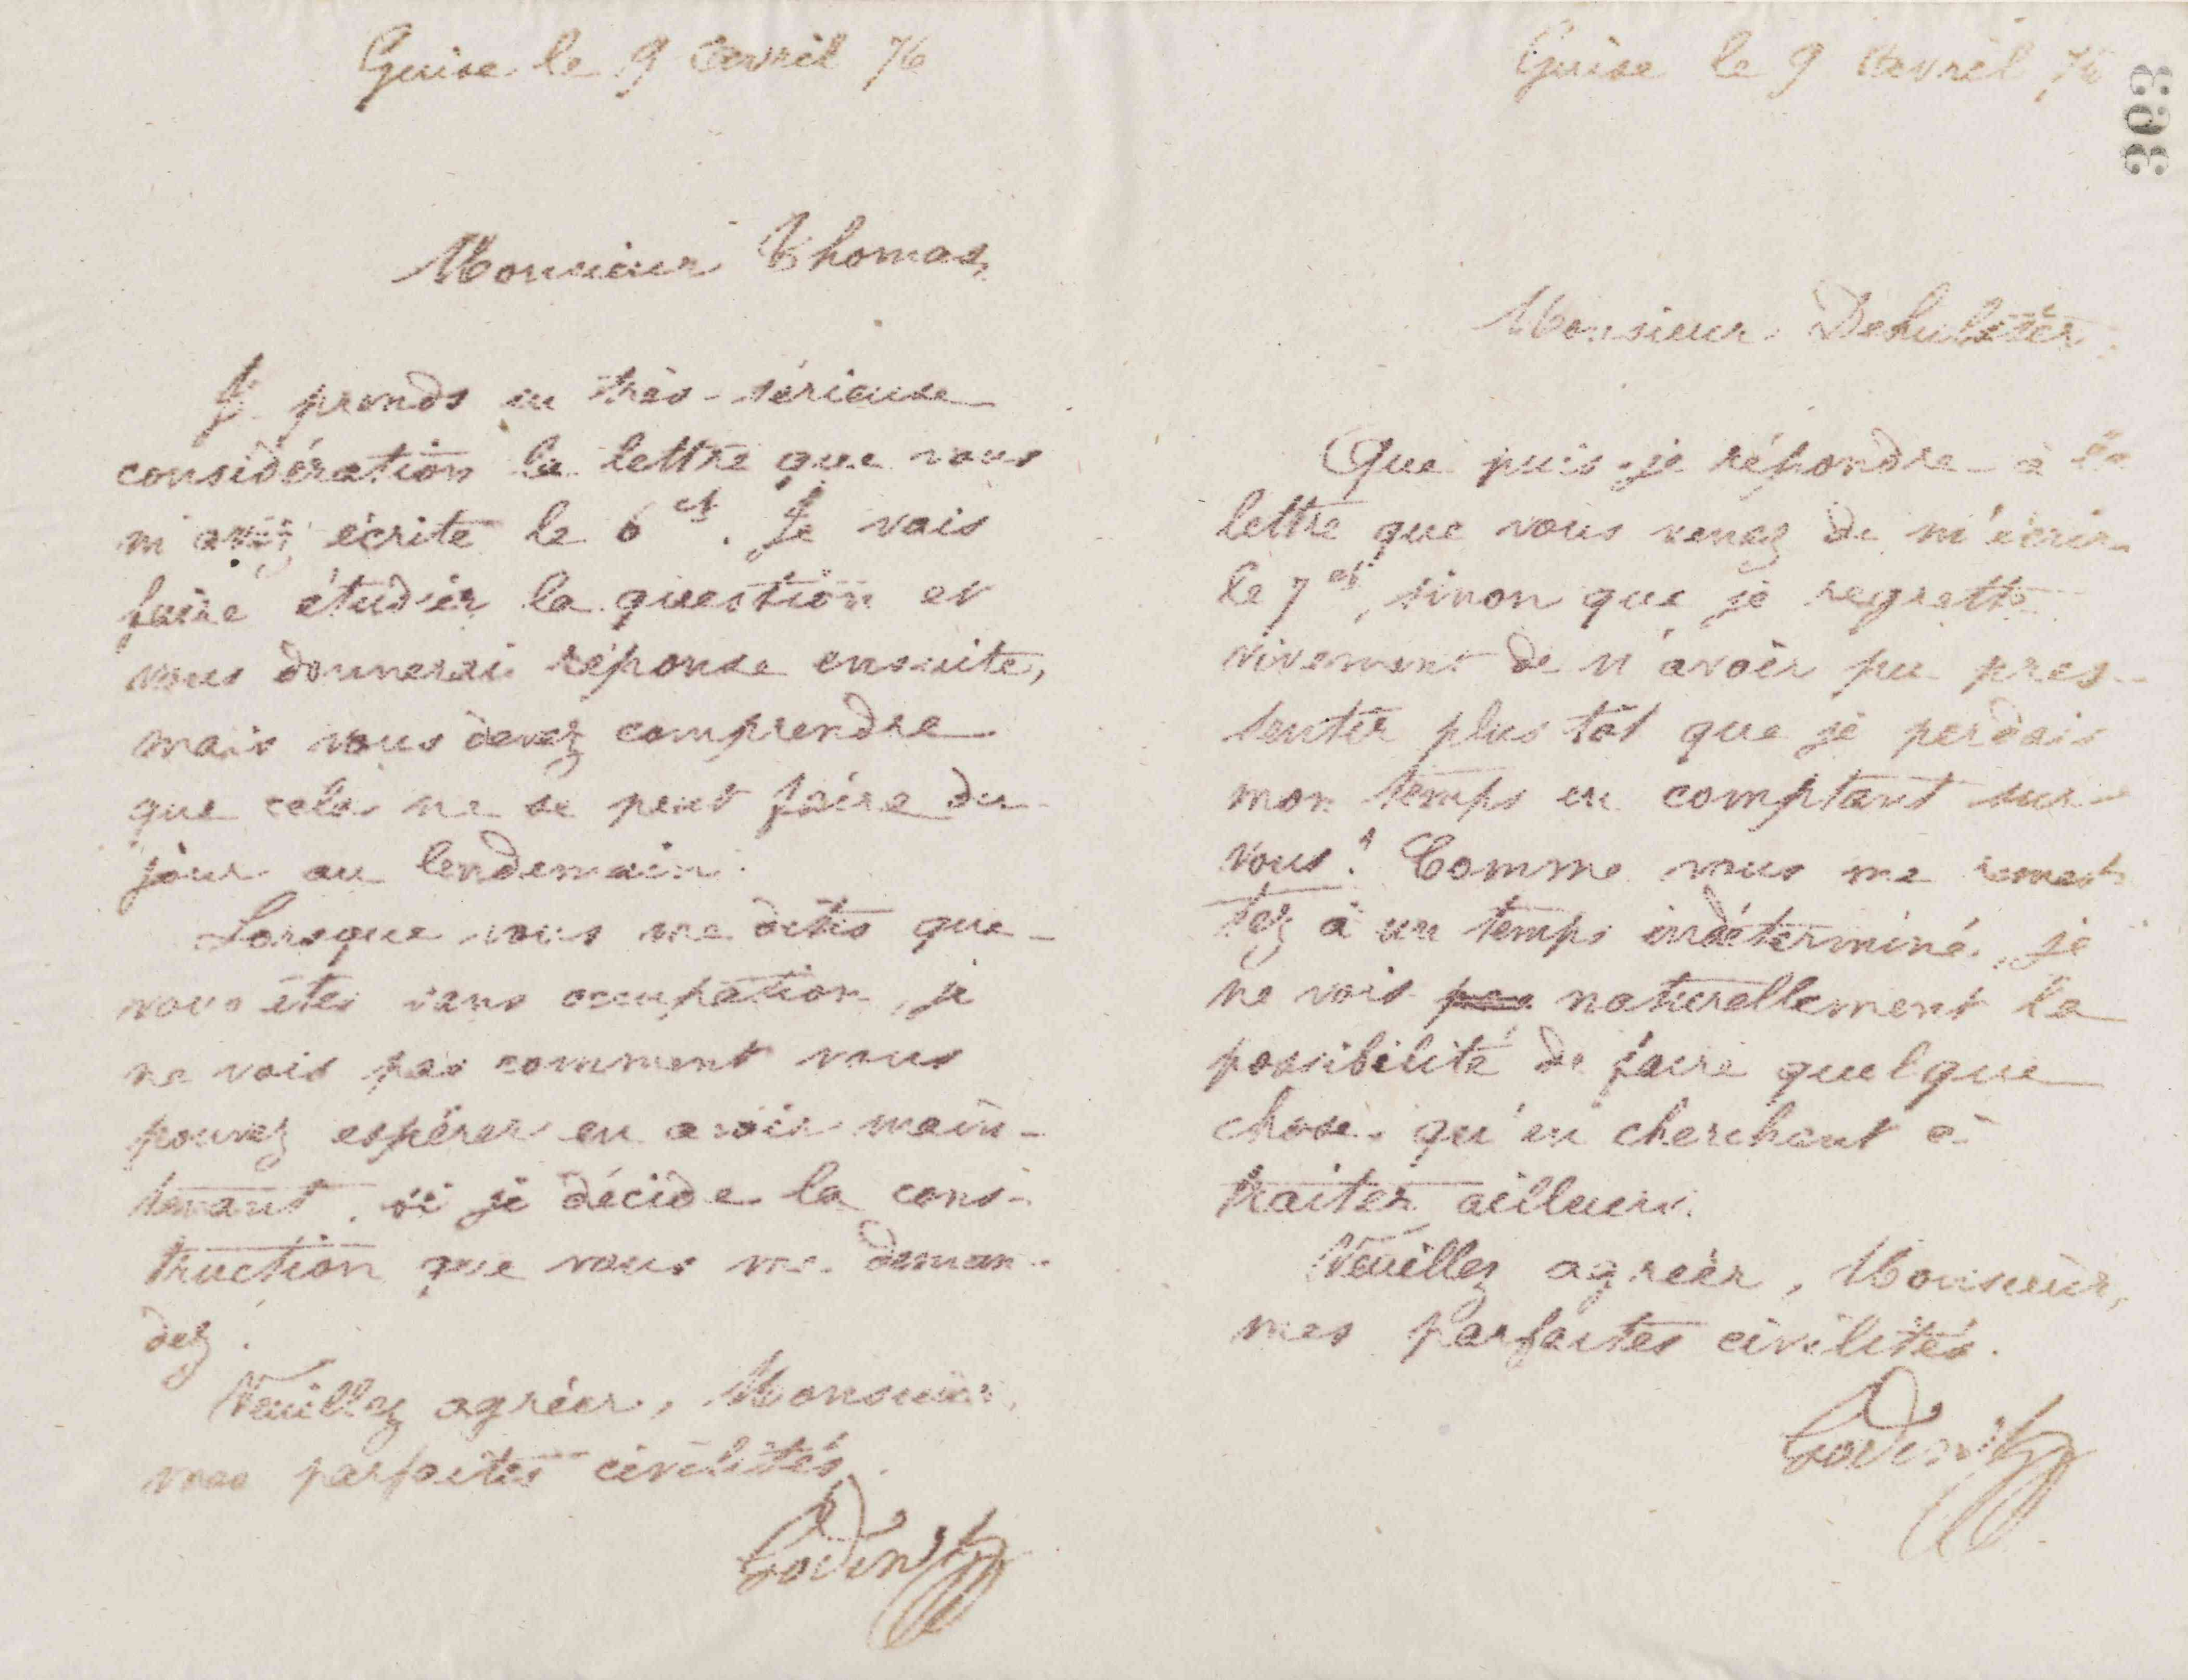 Guise le 9 Avril 76
Monsieur Thomas,
Je prends en très-sérieuse
considération la lettre que vous
m'avez écrite le 6 ct. Je vais
faire étudier la question et
vous donnerai réponse ensuite,
mais vous devez comprendre
que cela ne se peut faire du
jour au lendemain.
Lorsque vous me dites que
vous êtes sans occupation, je
ne vois pas comment vous
pouvez espérer en avoir main-
tenant, si je décide la cons-
truction que vous me deman-
dez.
Veuillez agréer, Monsieur,
mes parfaites civilités.
Godin
Guise le 9 Avril 76
393
Monsieur
Que puis-je répondre à la
lettre que vous venez de m'écrire
le 7 ct, sinon que je regrette
vivement de n'avoir pu pres-
sentir plus tôt que je perdais
mon temps en comptant sur
vous! Comme vous me remet-
tez à un temps indéterminé, je
ne vois pas naturellement la
possibilité de faire quelque
chose qu'en cherchant à
traiter ailleurs.
Veuillez agréer, Monsieur,
mes parfaites civilités.
Godin